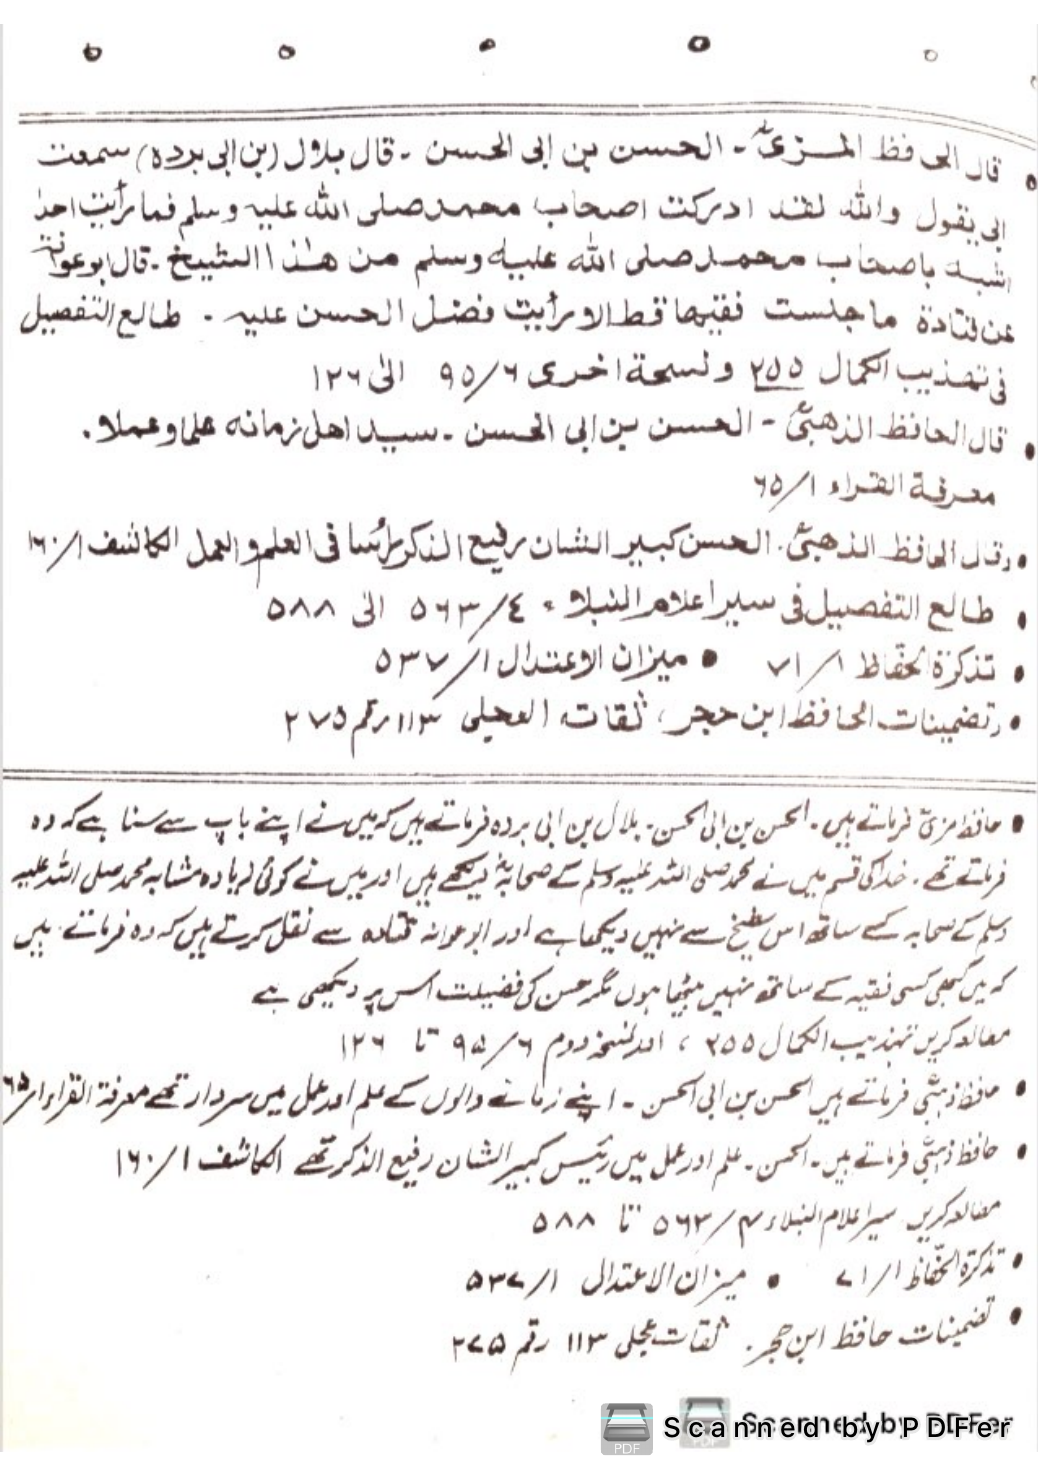 قال الحافظ المزیؒ ۔ الحسن بن ابی الحسن ۔ قال بلال (بن ابی بردہ) سمعت
ابی یقول واللہ لقد ادرکت اصحاب محمد صلی اللہ علیہ وسلم فما رأیت احدا
اشبہ باصحاب محمد صلی اللہ علیہ وسلم من ھٰذا الشیخ ۔ قال ابوعوانۃ
عن قتادۃ ما جلست فقیہا قط الا رأیت فضل الحسن علیہ ۔ طالع التفصیل
فی تہذیب الکمال ۲۵۵ و نسخۃ اخری ۶/۹۵ الیٰ ۱۲۶
• قال الحافظ الذھبیؒ ۔ الحسن بن ابی الحسن ۔ سید اھل زمانہ علما وعملا ۔
معرفۃ القراء ۱/۶۵
• وقال الحافظ الذھبیؒ ۔ الحسن کبیر الشان رفیع الذکر رأسا فی العلم والعمل الکاشف ۱/۱۶۰
• طالع التفصیل فی سیر اعلام النبلاء ٤/۵۶۳ الیٰ ۵۸۸
• تذکرۃ الحفّاظ ۱/۷۱ • میزان الاعتدال ۱/۵۳۷
• وتضمینات الحافظ ابن حجر، ثقات العجلی ۱۱۳ رقم ۲۷۵
• حافظ مزیؒ فرماتے ہیں ۔ الحسن بن ابی الحسن ۔ بلال بن ابی بردہ فرماتے ہیں کہ میں نے اپنے باپ سے سنا ہے کہ وہ
فرماتے تھے ۔ خدا کی قسم میں نے محمد صلی اللہ علیہ وسلم کے صحابہؓ دیکھے ہیں اور میں نے کوئی زیادہ مشابہ محمد صلی اللہ علیہ
وسلم کے صحابہ کے ساتھ اس شیخ سے نہیں دیکھا ہے اور ابو عوانہ قتادہ سے نقل کرتے ہیں کہ وہ فرماتے ہیں
کہ میں کبھی کسی فقیہ کے ساتھ نہیں بیٹھا ہوں مگر حسن کی فضیلت اس پر دیکھی ہے
مطالعہ کریں تہذیب الکمال ۲۵۵ ، اور نسخہ دوم ۶/۹۵ تا ۱۲۶
• حافظ ذہبیؒ فرماتے ہیں الحسن بن ابی الحسن ۔ اپنے زمانے والوں کے علم اور عمل میں سردار تھے معرفۃ القراء ۱/۶۵
• حافظ ذہبیؒ فرماتے ہیں ۔ الحسن ۔ علم اور عمل میں رئیس کبیر الشان رفیع الذکر تھے الکاشف ۱/۱۶۰
مطالعہ کریں سیر اعلام النبلاء ۴/۵۶۳ تا ۵۸۸
• تذکرۃ الحفّاظ ۱/۷۱ • میزان الاعتدال ۱/۵۳۷
• تضمینات حافظ ابن حجر ۔ ثقات عجلی ۱۱۳ رقم ۲۷۵
Scanned by PDFer
Scanned by PDFer